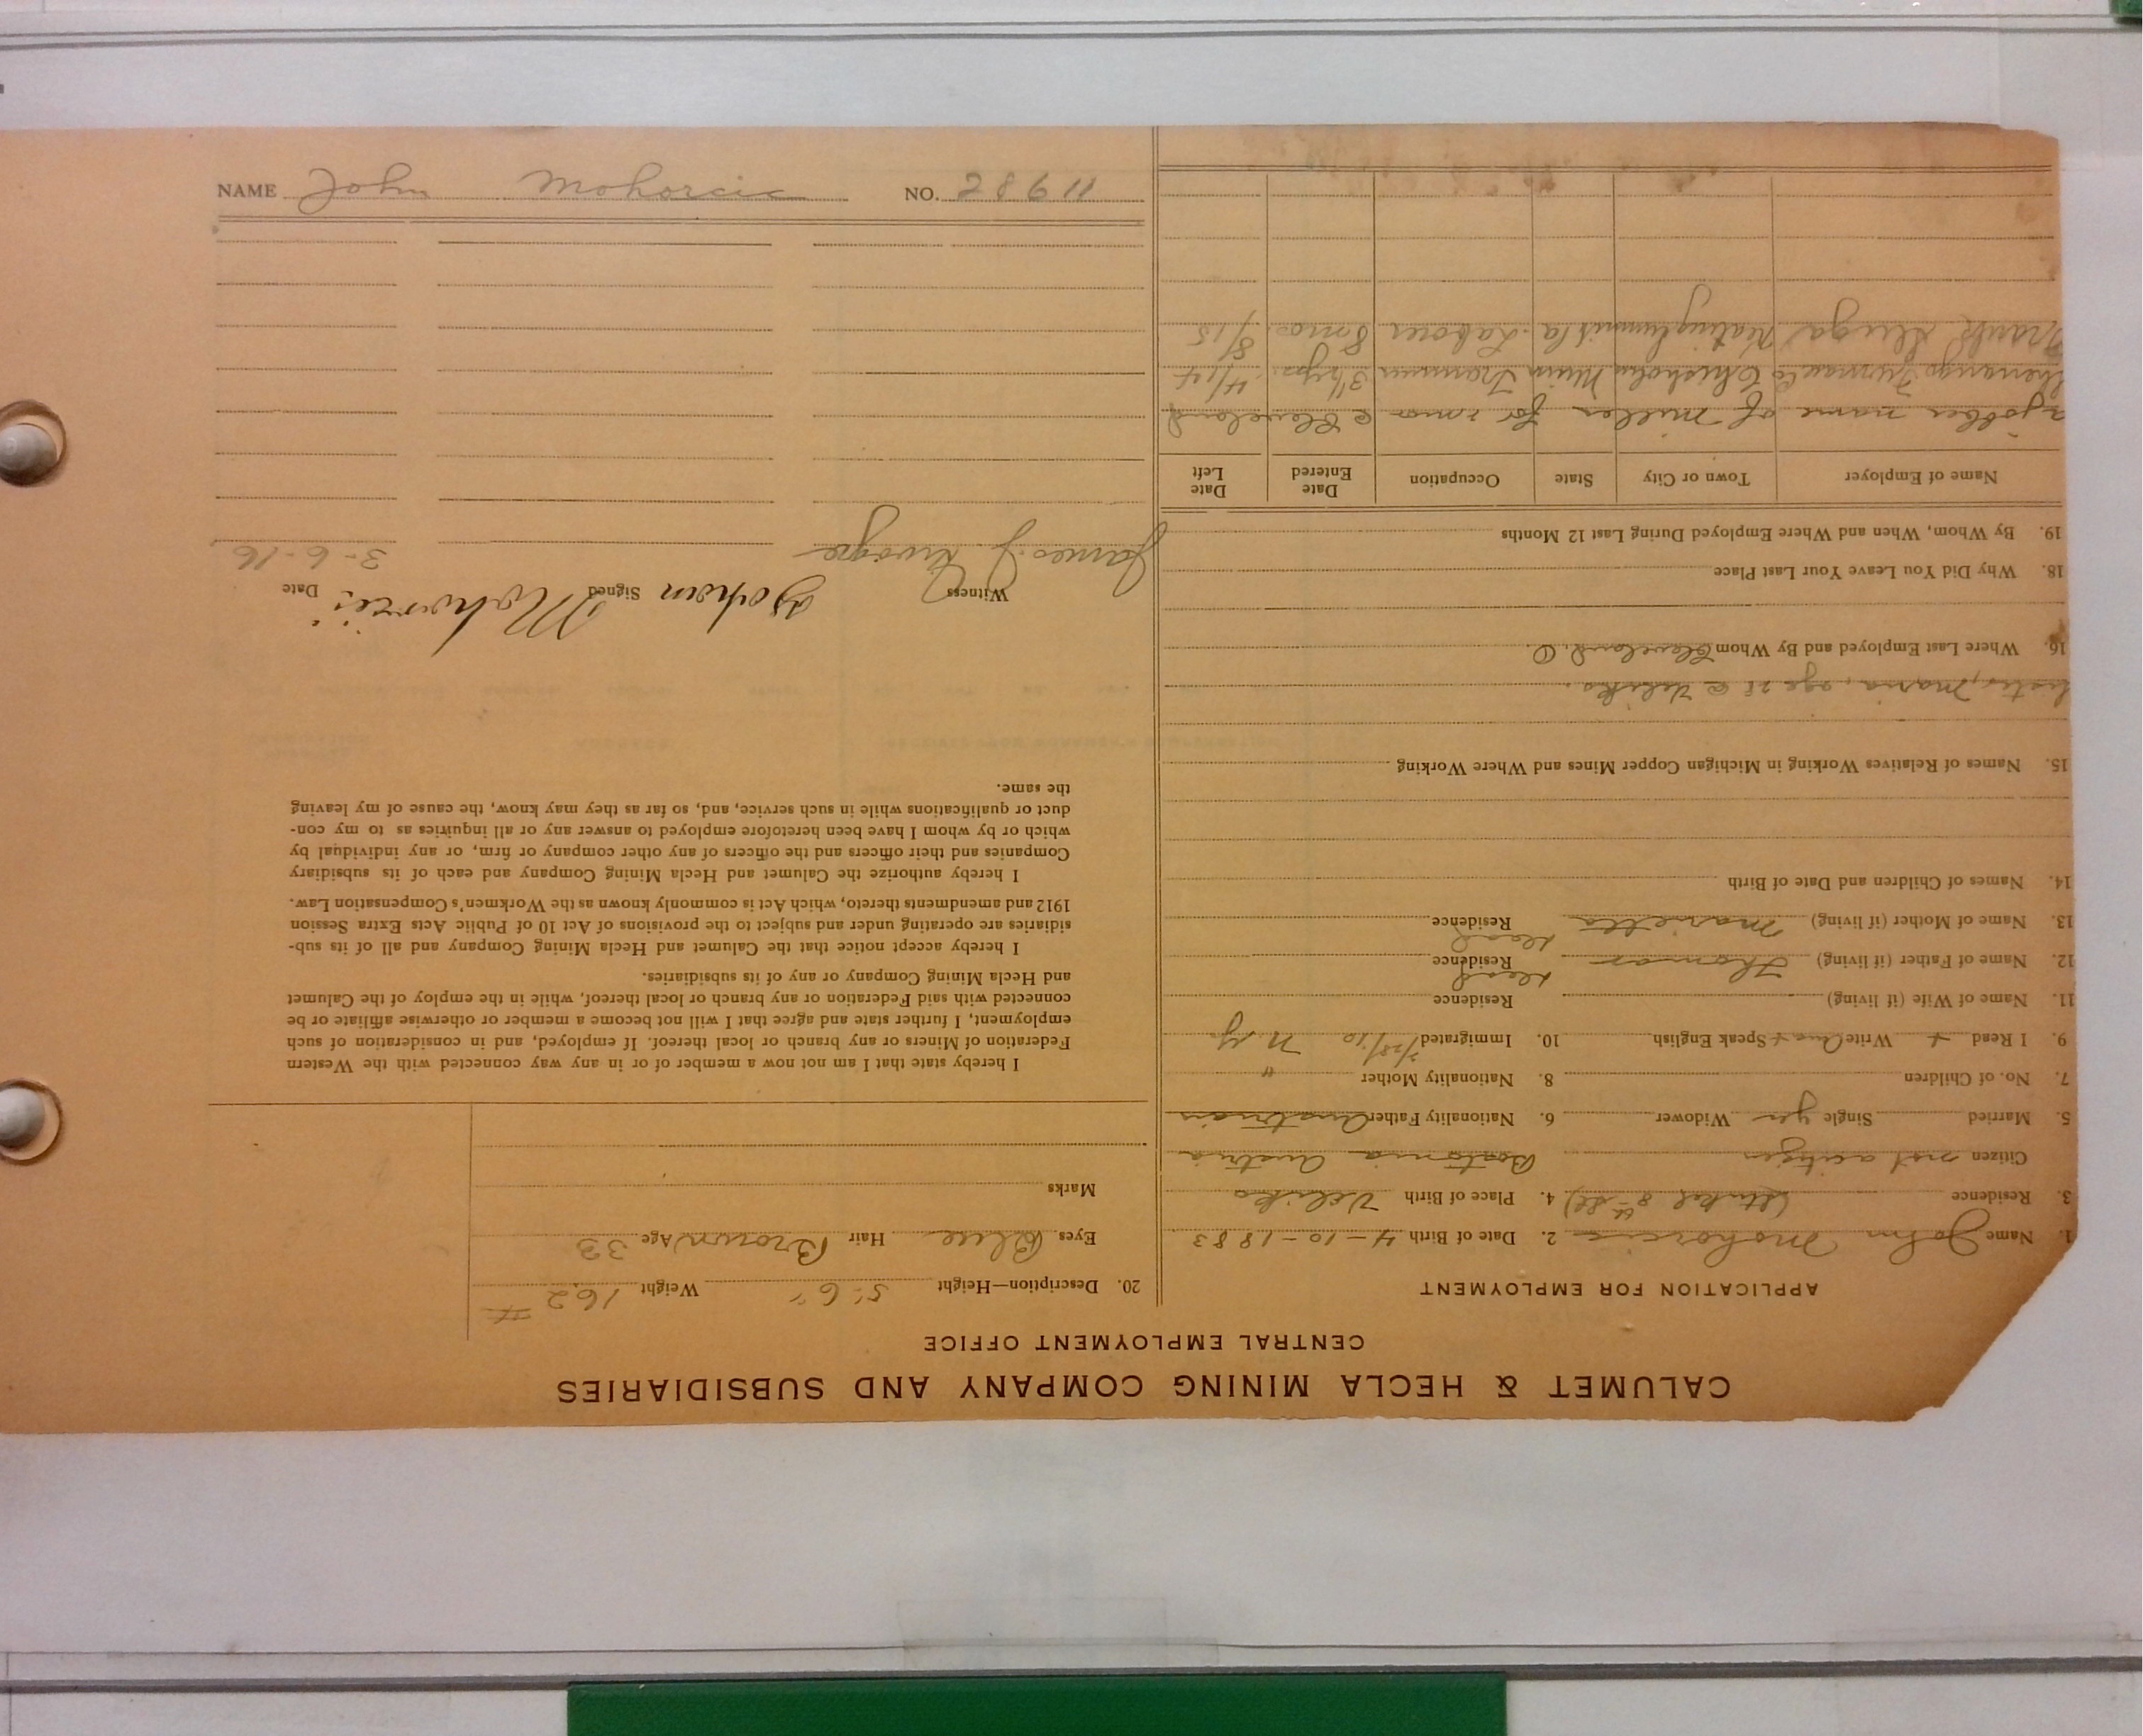 CALUMET & HECLA MINING COMPANY AND SUBSIDIARIES
CENTRAL EMPLOYMENT OFFICE
APPLICATION FOR EMPLOYMENT
1. Name John Mohorcic 2. Date of Birth 4-10-1883
3. Residence 8th St) 4. Place of Birth Veliko
Citizen not a citizen Austria
5. Married Single yes Widower 6. Nationality Father Austrian
7. No. of Children 8. Nationality Mother "
9. I Read + Write + Speak English 10. Immigrated N. Y.
11. Name of Wife (if living) Residence
12. Name of Father (if living) Thomas Residence dead
13. Name of Mother (if living) Marietta Residence dead
14. Names of Children and Date of Birth
15. Names of Relatives Working in Michigan Copper Mines and Where Working
Maria, age @ Veliko.
16. Where Last Employed and By Whom Cleveland, O.
18. Why Did You Leave Your Last Place
19. By Whom, When and Where Employed During Last 12 Months
Name of Employer Town or City State Occupation Date Entered Date Left
a jobber name of Miller for mo @ Cleveland
Shenango Furnace Co Chisholm Minn Trammer 3½ yrs. 4/14
Frank La. Laborer 8 mo.
20. Description—Height 5' 6" Weight 162 #
Eyes Blue Hair Brown Age 33
Marks
I hereby state that I am not now a member of or in any way connected with the Western
Federation of Miners or any branch or local thereof. If employed, and in consideration of such
employment, I further state and agree that I will not become a member or otherwise affiliate or be
connected with said Federation or any branch or local thereof, while in the employ of the Calumet
and Hecla Mining Company or any of its subsidiaries.
I hereby accept notice that the Calumet and Hecla Mining Company and all of its sub-
sidiaries are operating under and subject to the provisions of Act 10 of Public Acts Extra Session
1912 and amendments thereto, which Act is commonly known as the Workmen's Compensation Law.
I hereby authorize the Calumet and Hecla Mining Company and each of its subsidiary
Companies and their officers and the officers of any other company or firm, or any individual by
which or by whom I have been heretofore employed to answer any or all inquiries as to my con-
duct or qualifications while in such service, and, so far as they may know, the cause of my leaving
the same.
Witness Signed Date
James J. 3-6-16
NAME John Mohorcic NO. 28611